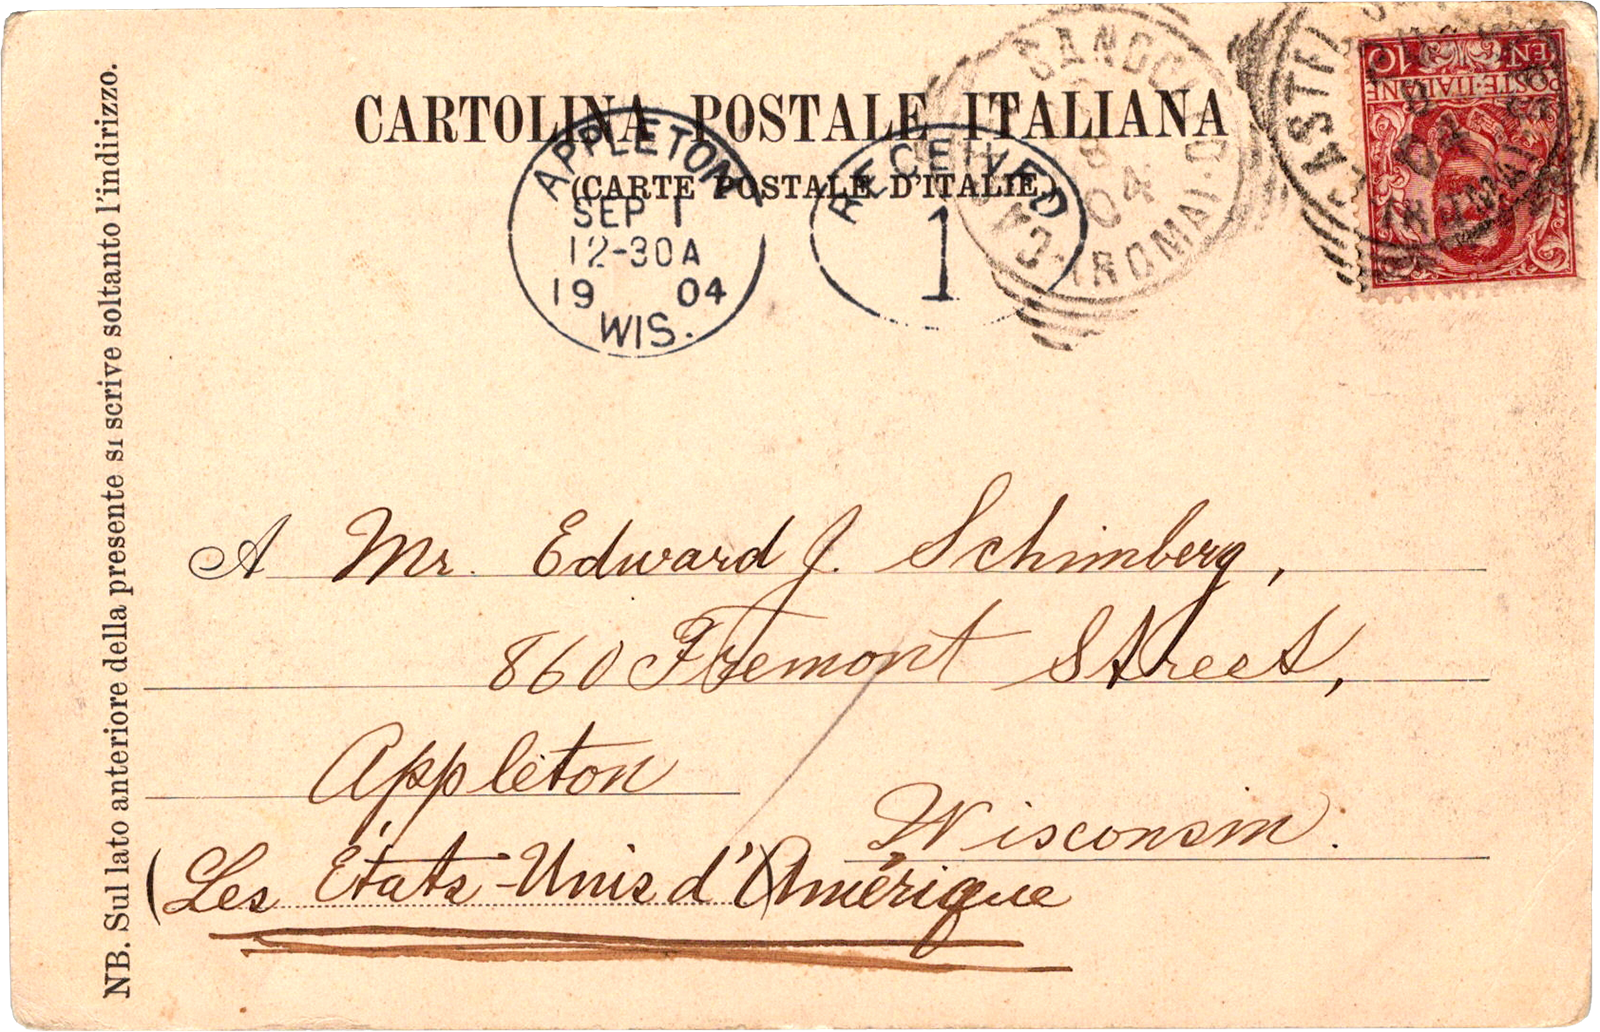 CARTOLINA POSTALE ITALIANA
(CARTE POSTALE D'ITALIE)
APPLETON
SEP 1
12-30A
19 04
WIS.
RECEIVED
1
04
(ROMA)
10
POSTE·ITALIANE
A Mr. Edward J. Schimberg,
860 Fremont Street,
Appleton
Wisconsin.
(Les États-Unis d'Amérique
NB. Sul lato anteriore della presente si scrive soltanto l'indirizzo.